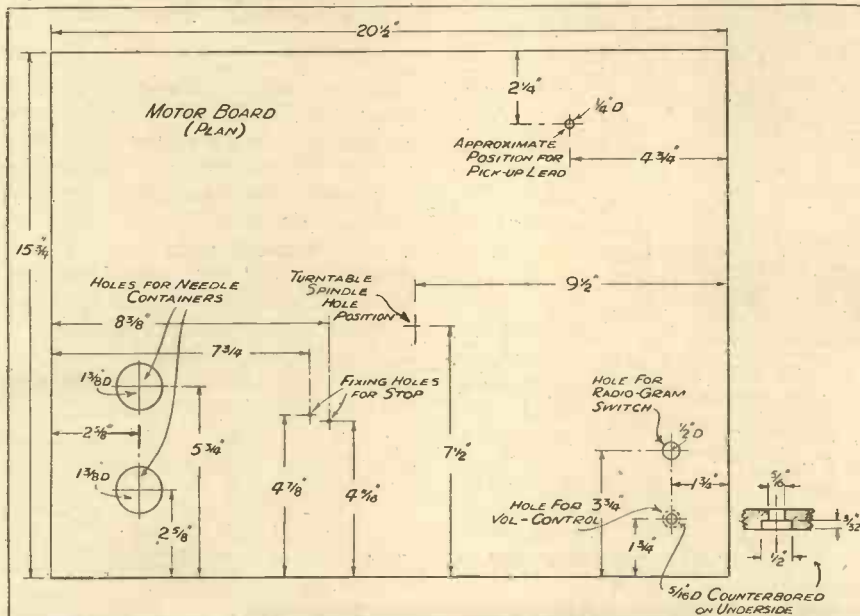 20½"
2¼"
¼"D
MOTOR BOARD
(PLAN)
APPROXIMATE
POSITION FOR
PICK-UP LEAD
4¾"
15¾"
HOLES FOR NEEDLE
CONTAINERS
TURNTABLE
SPINDLE
HOLE
POSITION
9½"
8⅜"
7¾
1⅜D
FIXING HOLES
FOR STOP
HOLE FOR
RADIO-GRAM
SWITCH
½"D
2⅝"
5¾"
7½"
1¾"
1⅜D
4⅞"
HOLE FOR
VOL-CONTROL
3¾"
5/16"
3/32"
2⅝"
1¾"
½"
5/16"D COUNTERBORED
ON UNDERSIDE